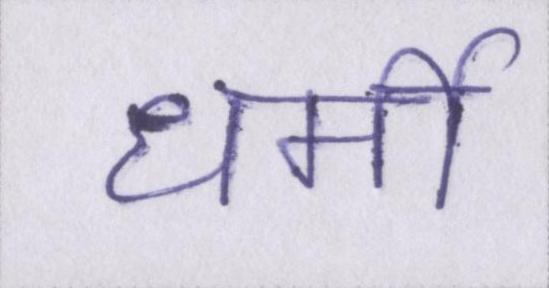 धर्मी